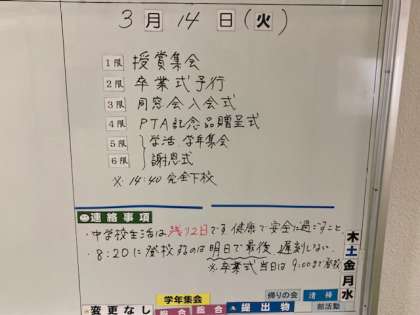 3月14日(火)
1限 授賞集会
2限 卒業式予行
3限 同窓会入会式
4限 PTA記念品贈呈式
5限 学活 学年集会
6限 謝恩式
※14:40 完全下校
連絡事項
・中学校生活は残り2日です。健康で安全に過ごすこと
・8:20に登校するのは明日で最後。遅刻しない。
※卒業式当日は9:00まで登校
木
土
金
月
水
学年集会
帰りの会
清掃
変更なし
総合
総合
提出物
部活動